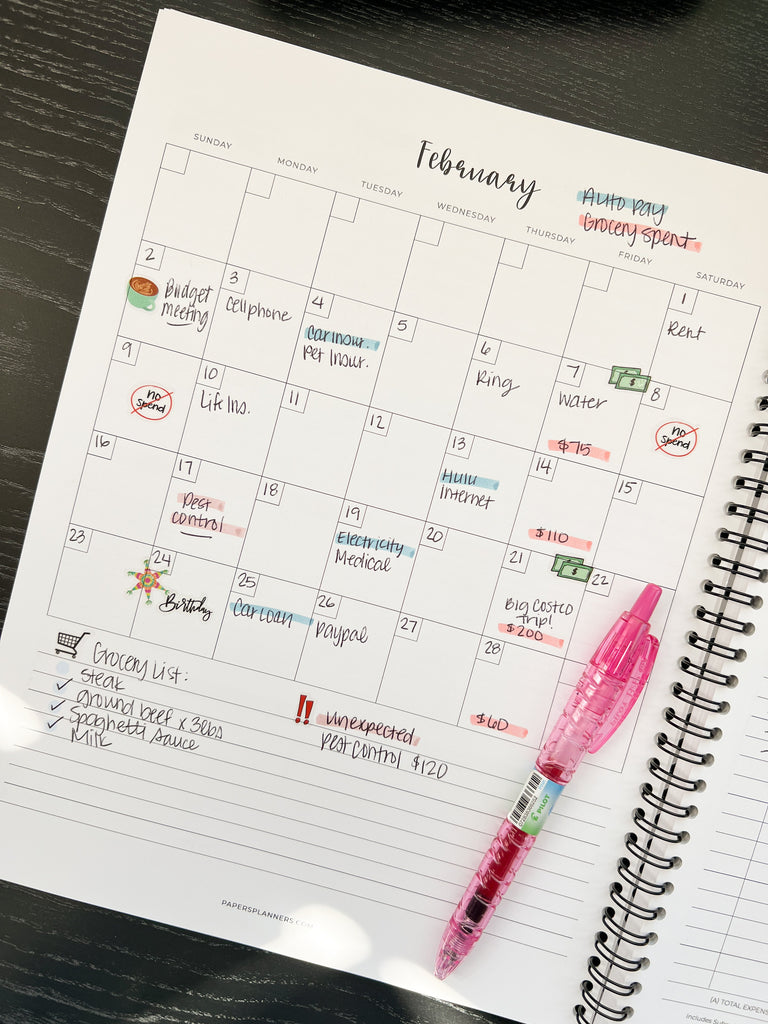 February
Auto pay
Grocery spent
SUNDAY MONDAY TUESDAY WEDNESDAY THURSDAY FRIDAY SATURDAY
1
Rent
2
Budget
meeting
3
Cellphone
4
Car Insur.
Pet Insur.
5
6
Ring
7
Water
$75
8
no
spend
9
no
spend
10
Life Ins.
11
12
13
Hulu
Internet
14
$110
15
16
17
Pest
control
18
19
Electricity
Medical
20
21
Big Costco
trip!
$200
22
23
24
Birthday
25
Car Loan
26
Paypal
27
28
$60
Grocery List:
Steak
✓ ground beef x 3lbs
✓ Spaghetti Sauce
✓ Milk
!! Unexpected
Pest Control $120
PILOT
PAPERSPLANNERS.COM
(A) TOTAL EXPEN